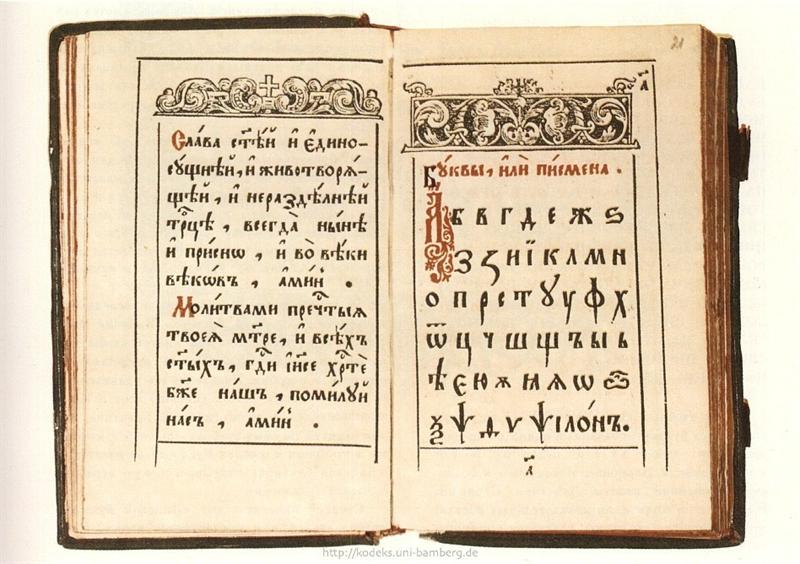 Сла́ва ст҃ѣ́й и҆ є҆дино-
сꙋ́щнѣй, и҆ животворѧ́-
щѣй, и҆ нераздѣ́лнѣй
трⷪ҇цѣ, всегда̀ ны́нѣ
и҆ при́снѡ, и҆ во̀ вѣ́ки
вѣкѡ́въ, а҆ми́нь.
Моли́твами пречⷭ҇тыѧ
твоеѧ̀ мт҃ре, и҆ всѣ́хъ
ст҃ы́хъ, гдⷭ҇и і҆и҃се хрⷭ҇тѐ
бж҃е на́шъ, поми́лꙋй
на́съ, а҆ми́нь.
21
а҃
Бꙋ́квы, и҆лѝ пи́смена.
А Б В Г Д Е Ж Ѕ
З Ꙁ И Ї К Л М Н
О П Р С Т Ꙋ У Ф Х
Ѿ Ц Ч Ш Щ Ъ Ы Ь
Ѣ Є Ю Ѫ Ꙗ Ѧ Ѡ
Ѯ Ѱ Д Ѵ Ѱїло́нъ.
а҃
http://kodeks.uni-bamberg.de